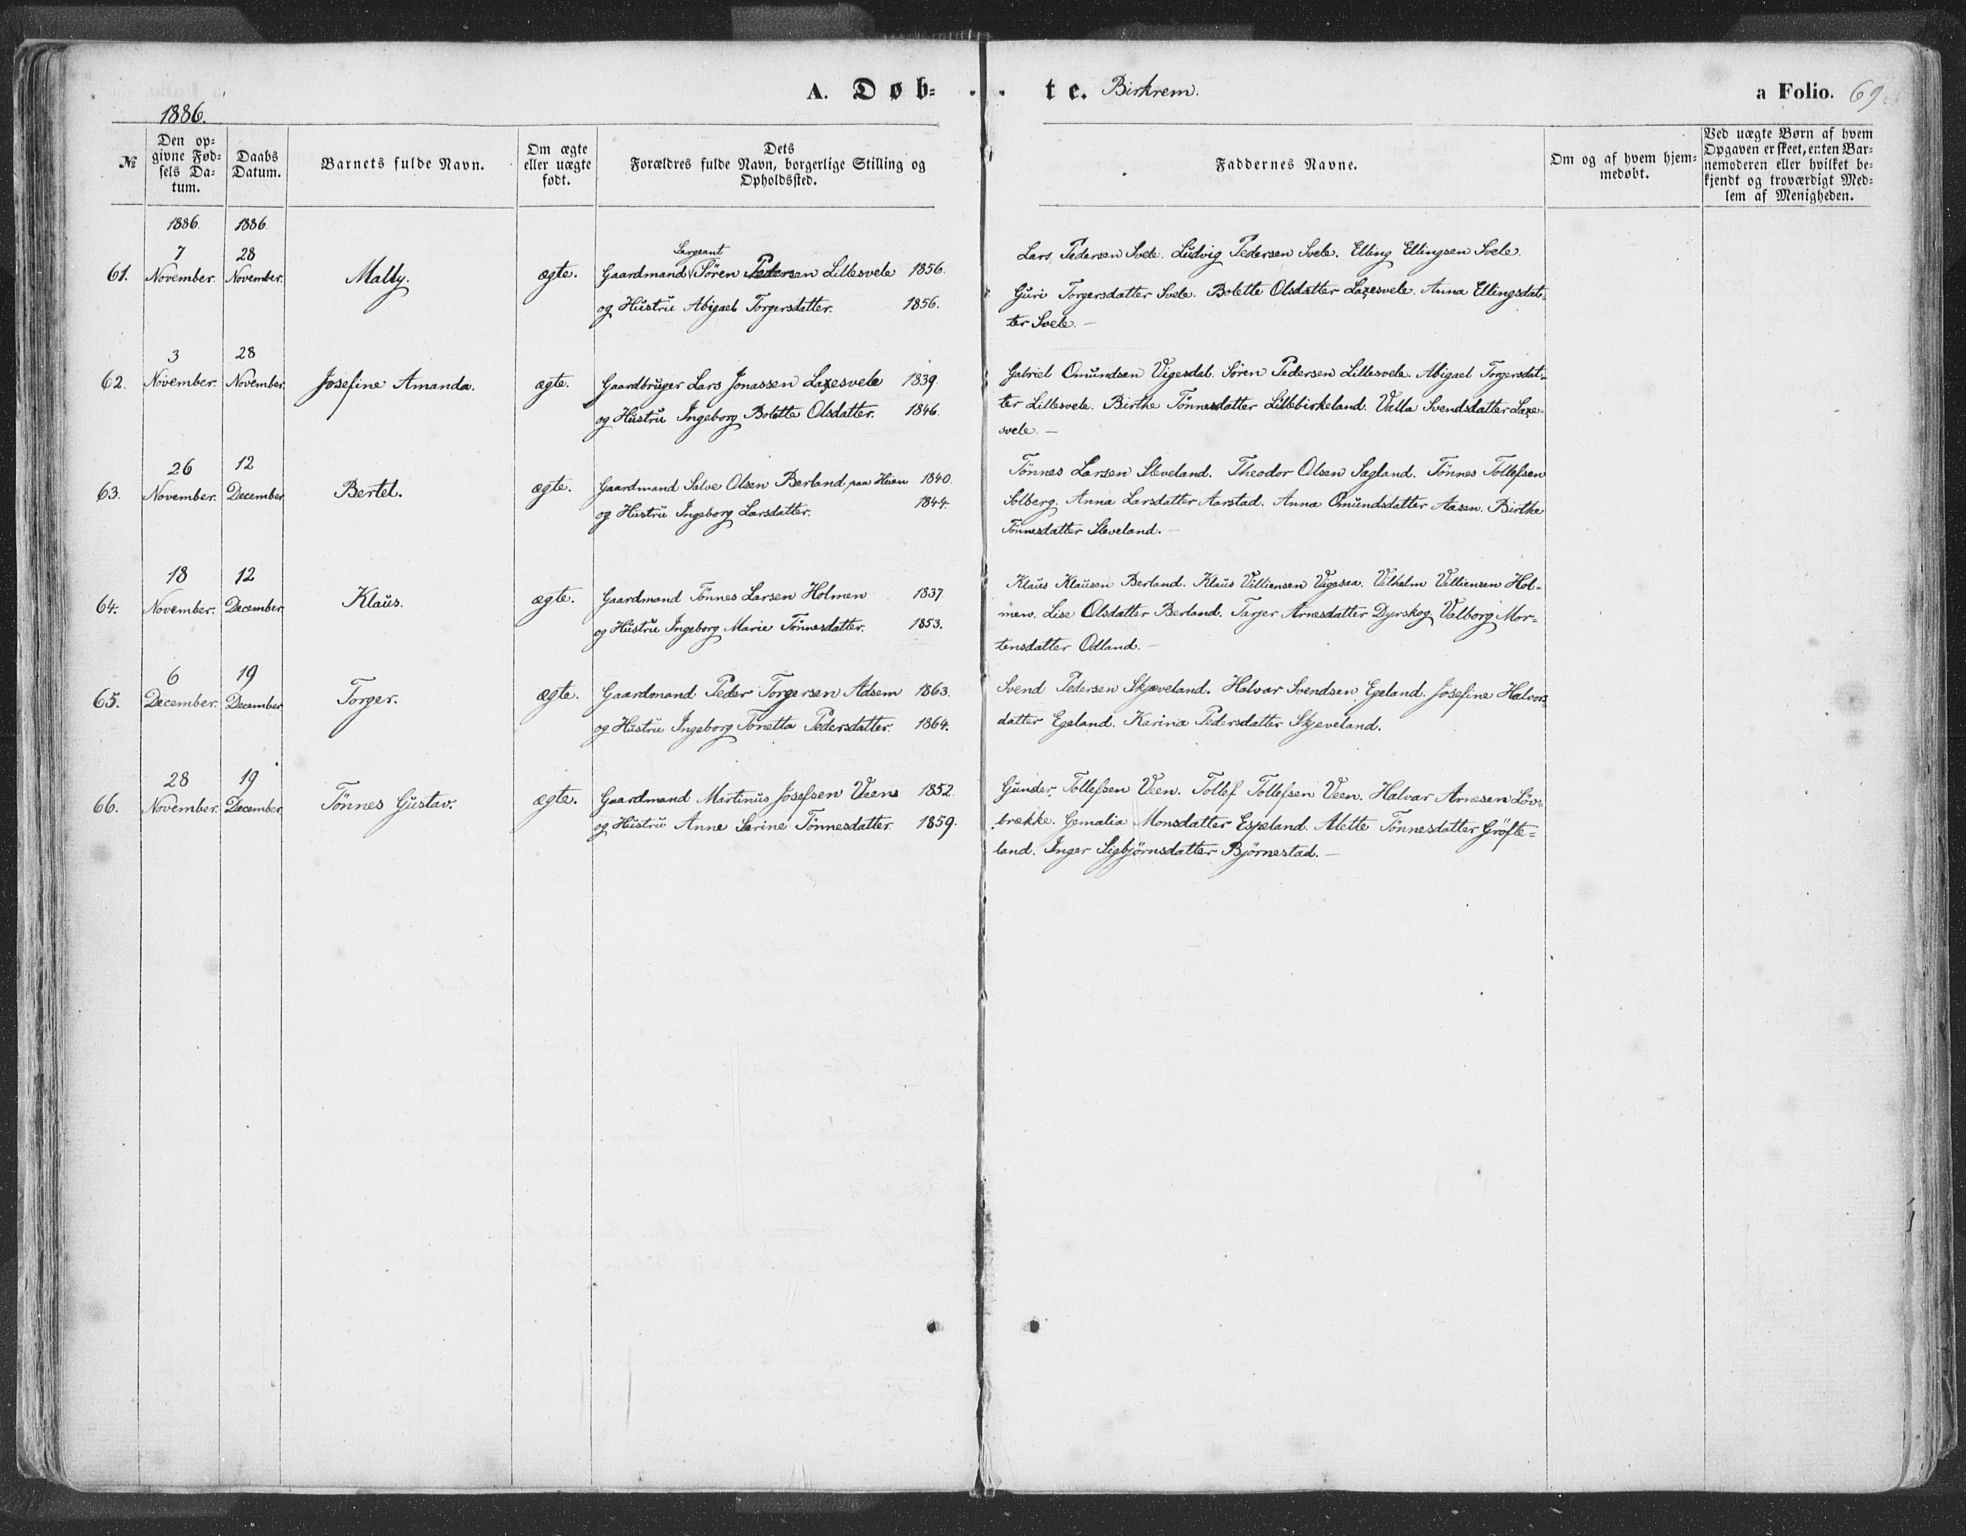 1886.
A. Døb- . . te. Birkrem. a Folio. 69.
№
Den op-
givne Fød-
sels Da-
tum.
Daabs
Datum.
Barnets fulde Navn.
Om ægte
eller uægte
født.
Dets
Forældres fulde Navn, borgerlige Stilling og
Opholdssted.
Faddernes Navne.
Om og af hvem hjem-
medøbt.
Ved uægte Børn af hvem
Opgaven er skeet, enten Bar-
nemoderen eller hvilket be-
kjendt og troværdigt Med-
lem af Menigheden.
1886. 1886.
61. 7 November. 28 November. Mally. ægte.
Sergeant
Gaardmand Søren Pedersen Lillesvele 1856.
og Hustru Abigael Torgersdatter. 1856.
Lars Pedersen Svele. Ludvig Pedersen Svele. Elling Ellingsen Svele.
Guri Torgersdatter Svele. Bolette Olsdatter Laxesvele. Anna Ellingsdat-
ter Svele. —
62. 3 November. 28 November. Josefine Amanda. ægte.
Gaardbruger Lars Jonassen Laxesvele 1839
og Hustru Ingeborg Bolette Olsdatter. 1846.
Gabriel Omundsen Vigesdel. Søren Pedersen Lillesvele. Abigael Torgersdat-
ter Lillesvele. Birthe Tønnesdatter Lillebirkeland. Valla Svendsdatter Laxe-
svele. —
63. 26 November. 12 December. Bertel. ægte.
Gaardmand Salve Olsen Berland paa 1840.
og Hustru Ingeborg Larsdatter. 1844.
Tønnes Larsen Sleveland. Theodor Olsen Sagland. Tønnes Tollefsen
Solberg. Anna Larsdatter Aarstad. Anna Omundsdatter Aasen. Birthe
Tønnesdatter Sleveland. —
64. 18 November. 12 December. Klaus. ægte.
Gaardmand Tønnes Larsen Holmen 1837
og Hustru Ingeborg Marie Tønnesdatter. 1853.
Klaus Klausen Berland. Klaus Villiensen Vigesaa. Vilhelm Villiensen Hol-
men. Lise Olsdatter Berland. Tarjer Arnesdatter Dyrskog. Valborg Mor-
tensdatter Odland. —
65. 6 December. 19 December. Torger. ægte.
Gaardmand Peder Torgersen Adsem 1863.
og Hustru Ingeborg Tonetta Pedersdatter. 1864.
Svend Pedersen Skjæveland. Halvar Svendsen Egeland. Josefine Halvors
datter Egeland. Karina Pedersdatter Skjæveland.
66. 28 November. 19 December. Tønnes Gustav. ægte.
Gaardmand Martinus Josefsen Veen 1852.
og Hustru Anne Serine Tønnesdatter 1859.
Gunder Tollefsen Veen. Tollef Tollefsen Veen. Halvar Arnesen Löv-
brække. Gemalia Monsdatter Espeland. Alette Tønnesdatter Gröfte-
land. Inger Sigbjørnsdatter Bjørnestad. —